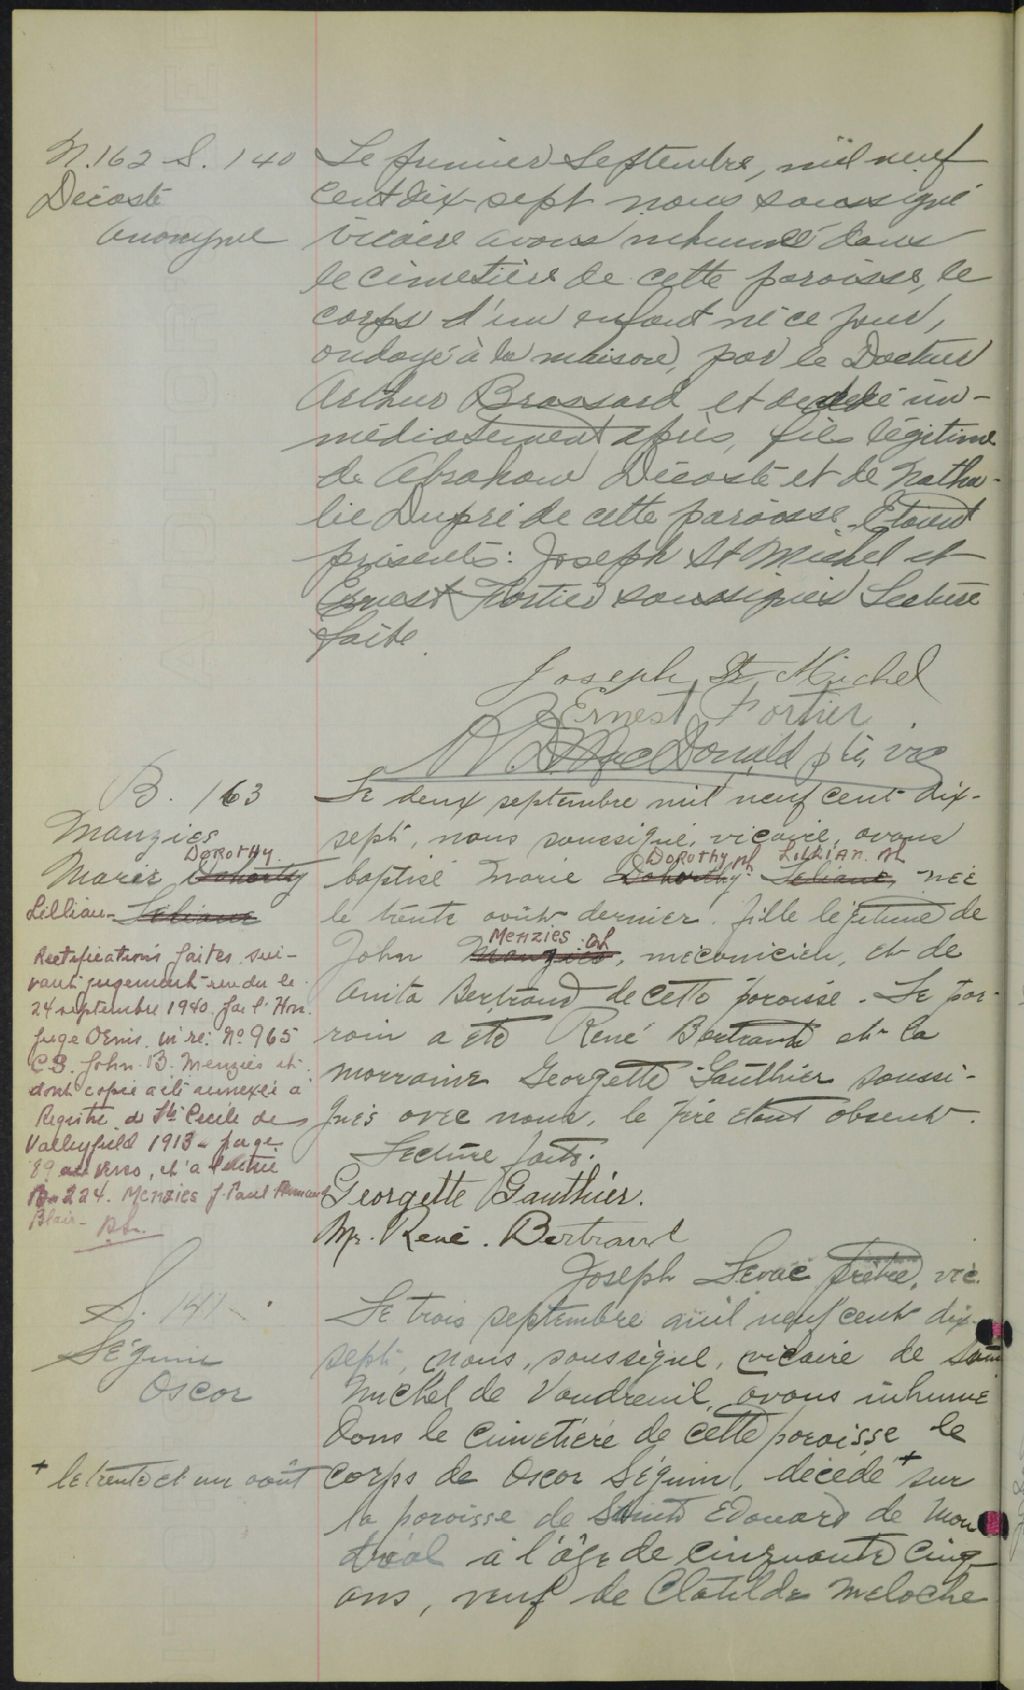 N. 162 S. 140
Décoste
Anonyme
Le premier Septembre, mil neuf
cent dix-sept nous soussigné
vicaire avons inhumé dans
le cimetière de cette paroisse, le
corps d'un enfant né ce jour,
ondoyé à la maison, par le Docteur
Arthur Brossard et décédé im-
médiatement après, fils légitime
de Abraham Décoste et de Natha-
lie Dupré de cette paroisse. Étaient
présents: Joseph St Michel et
Ernest Fortier soussignés Lecture
faite.
Joseph St Michel
Ernest Fortier
MacDonald ptre, vic
B. 163
Manzies
DOROTHY
Marie Dohorty
Lillian - Liliane
Rectifications faites sui-
vant jugement rendu le
24 septembre 1940 par l'Hon.
Juge Denis, in re: No 965
C.S. John B. Menzies et
dont copie a été annexée à
Registre de Ste Cécile de
Valleyfield 1913 - page
89 au verso, et a l'entrée
B-224. Menzies J. Paul
Blair-
Le deux septembre mil neuf cent dix-
sept, nous soussigné, vicaire, avons
Dorothy LILLIAN
baptisé Marie Dohorthy Liliane, née
le trente août dernier, fille légitime de
Menzies
John Manzies, mécanicien, et de
Anita Bertrand de cette paroisse. Le par-
rain a été René Bertrand et la
marraine Georgette Gauthier soussi-
gnés avec nous, le père étant absent.
Lecture faite.
Georgette Gauthier.
Mr. René. Bertrand
Joseph Sévac prêtre, vic.
S. 141
Séguin
Oscar
+ le trente et un août
Le trois septembre mil neuf cent dix-
sept, nous, soussigné, vicaire de Saint
Michel de Vaudreuil, avons inhumé
dans le cimetière de cette paroisse le
corps de Oscar Séguin, décédé + sur
la paroisse de Saint Edouard de Mon
tréal à l'âge de cinquante cinq
ans, veuf de Clotilde Meloche